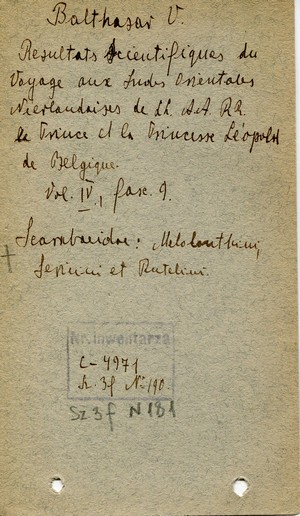 Balthasar V.
Resultats Scientifiques du
Voyage aux Indes Orientales
Néerlandaises de LL. AA. RR.
le Prince et la Princesse Léopold
de Belgique.
Vol. IV, 1 fasc. 9.
Scarabaeidae: Melolonthini,
Sericini et Rutelini.
Nr. inwentarza
C-4971
Sz. 3f No 190.
Sz 3f N 181